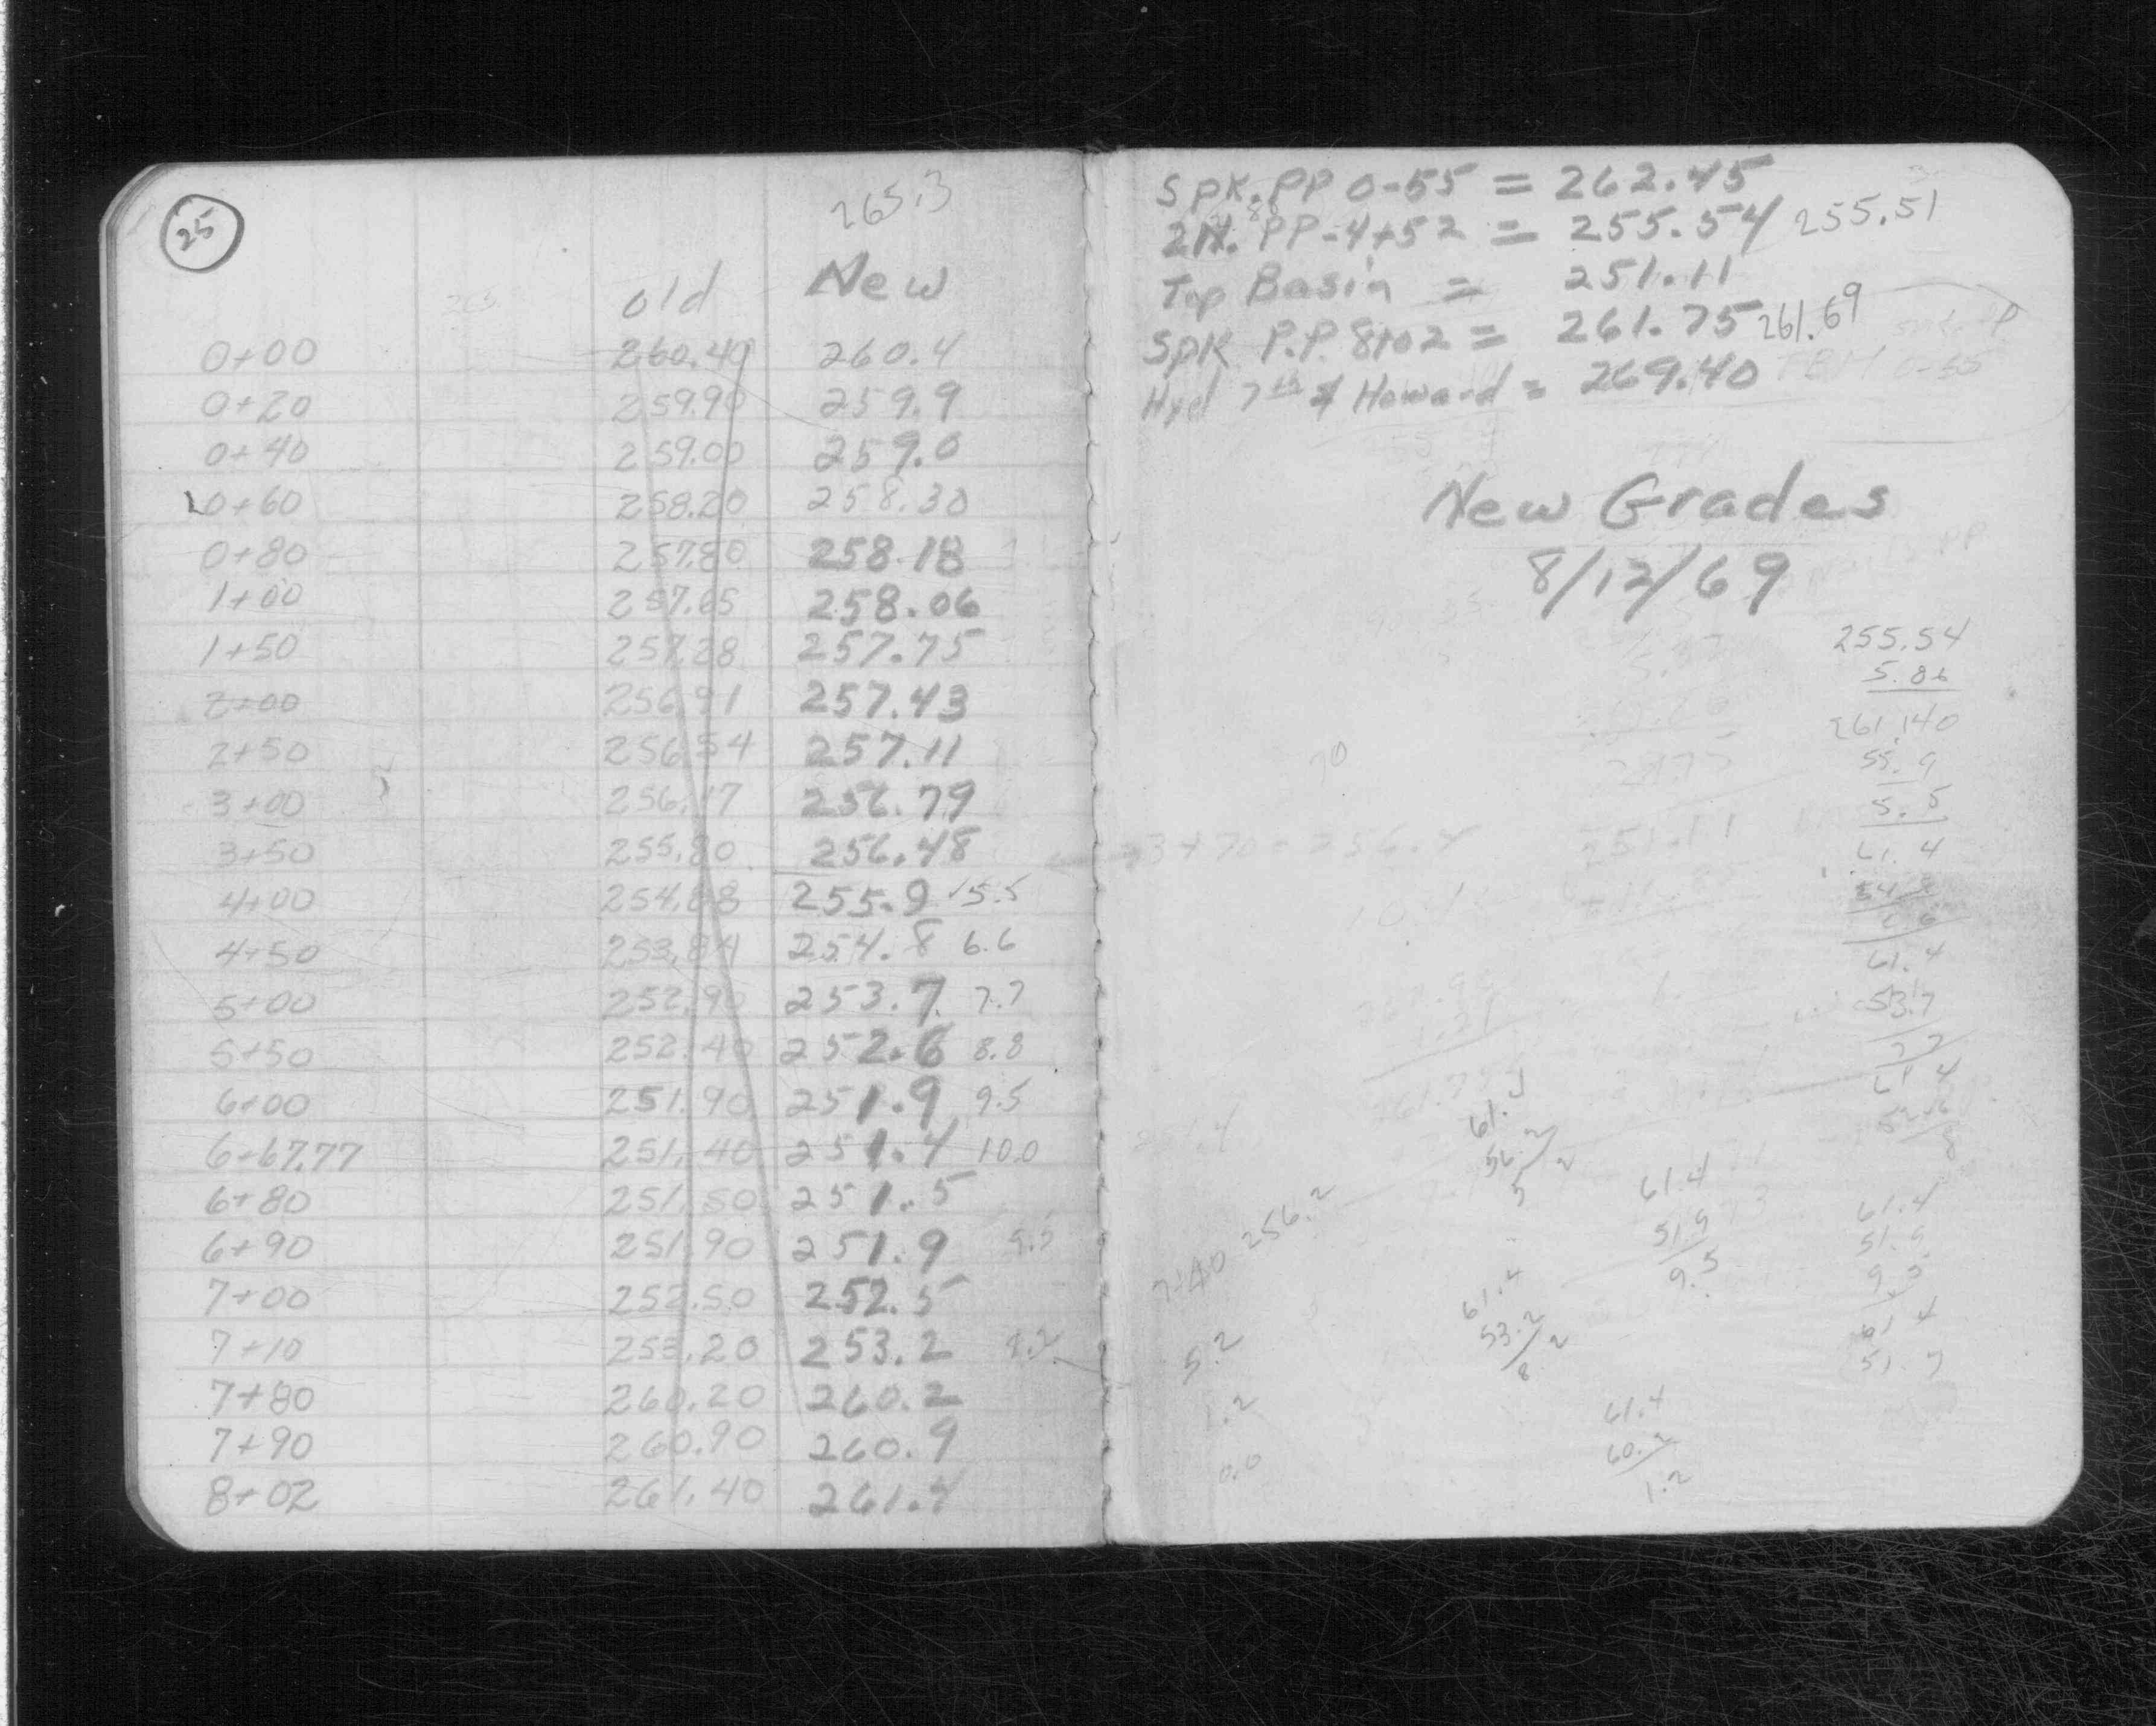 25
265.3
old New
0+00 260.40 260.4
0+20 259.90 259.9
0+40 259.00 259.0
0+60 258.20 258.30
0+80 257.80 258.18
1+00 257.65 258.06
1+50 257.28 257.75
2+00 256.91 257.43
2+50 256.54 257.11
3+00 256.17 256.79
3+50 255.80 256.48
4+00 254.88 255.9 5.5
4+50 253.84 254.8 6.6
5+00 252.90 253.7 7.7
5+50 252.40 252.6 8.8
6+00 251.90 251.9 9.5
6+67.77 251.40 251.4 10.0
6+80 251.50 251.5
6+90 251.90 251.9 9.5
7+00 252.50 252.5
7+10 253.20 253.2 8.2
7+80 260.20 260.2
7+90 260.90 260.9
8+02 261.40 261.4
Spk. PP 0-55 = 262.45
PP-4+52 = 255.54 255.51
Top Basin = 251.11
Spk P.P. 8+02 = 261.75 261.69
Hyd 7th & Howard = 269.40
TBM 0-55
New Grades
8/12/69
255.54
5.86
261.140
55.9
5.5
61.4
54.8
6.6
61.4
53.7
7.7
61.4
52.6
8
3+70 = 256.4
251.11
7+40 256.2
5.2
1.2
0.0
56.2
5
61.4
53.2
8.2
61.4
51.9
9.5
61.4
60.2
1.2
61.4
51.9
9.5
61.4
51.7